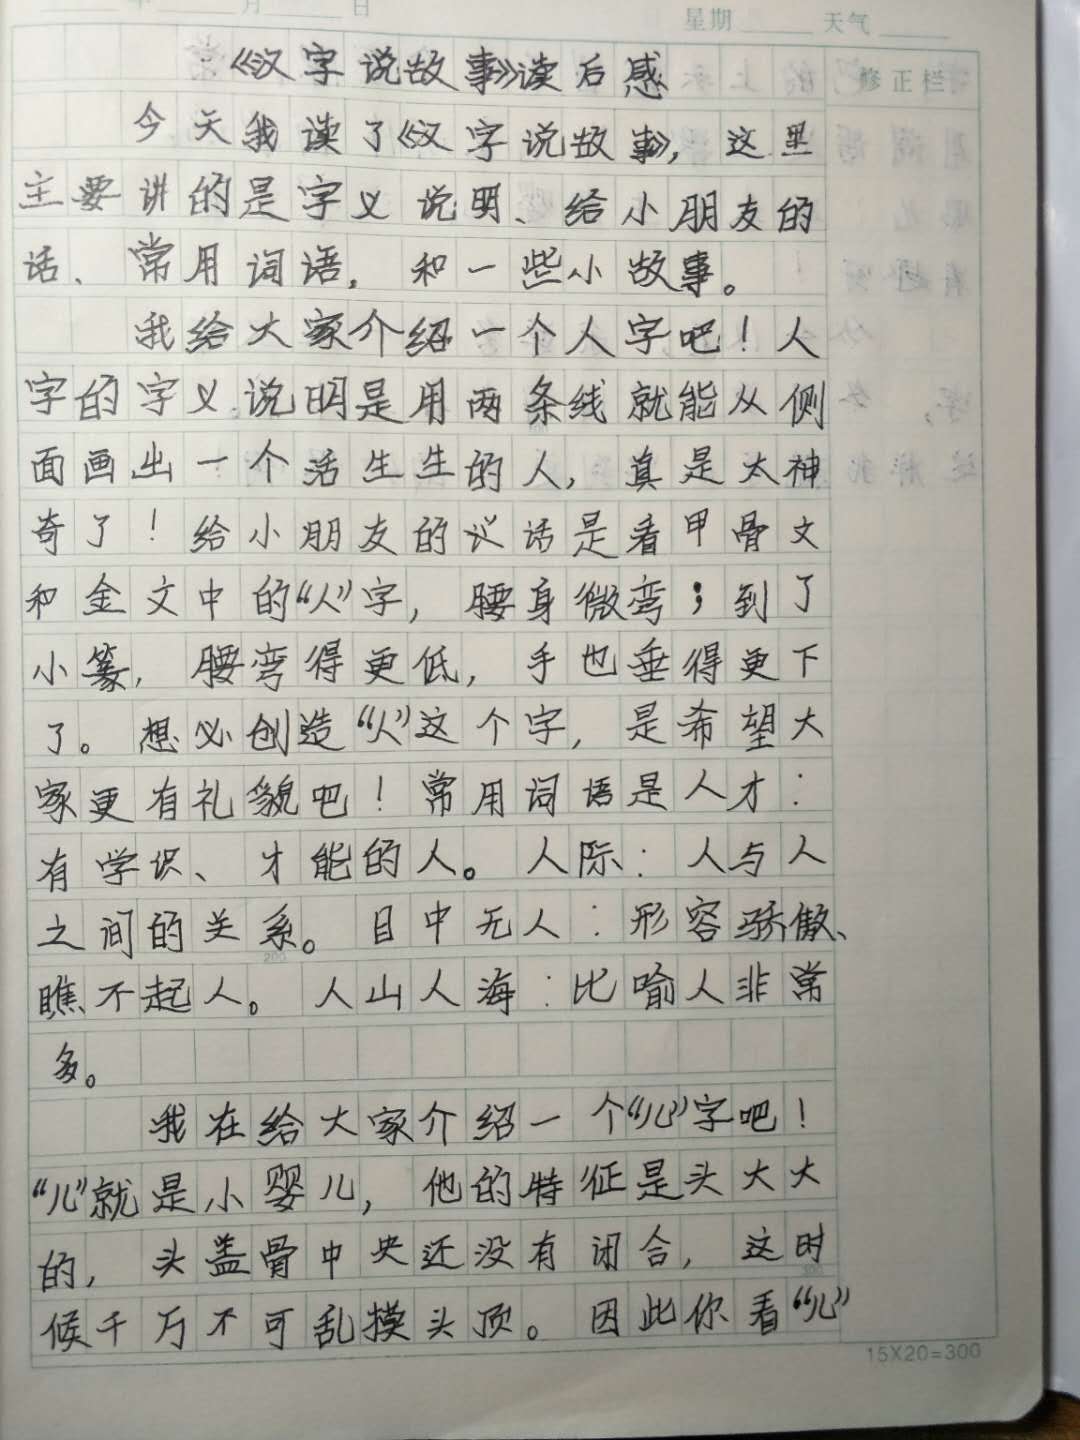 年 月 日 星期 天气
修正栏
《汉字说故事》读后感
今天我读了《汉字说故事》，这里
主要讲的是字义说明、给小朋友的
话、常用词语，和一些小故事。
我给大家介绍一个人字吧！人
字的字义说明是用两条线就能从侧
面画出一个活生生的人，真是太神
奇了！给小朋友的议话是看甲骨文
和金文中的“人”字，腰身微弯；到了
小篆，腰弯得更低，手也垂得更下
了。想必创造“人”这个字，是希望大
家更有礼貌吧！常用词语是人才：
有学识、才能的人。人际：人与人
之间的关系。目中无人：形容骄傲、
瞧不起人。人山人海：比喻人非常
多。
我在给大家介绍一个“儿”字吧！
“儿”就是小婴儿，他的特征是头大大
的，头盖骨中央还没有闭合，这时
候千万不可乱摸头顶。因此你看“儿”
15X20=300